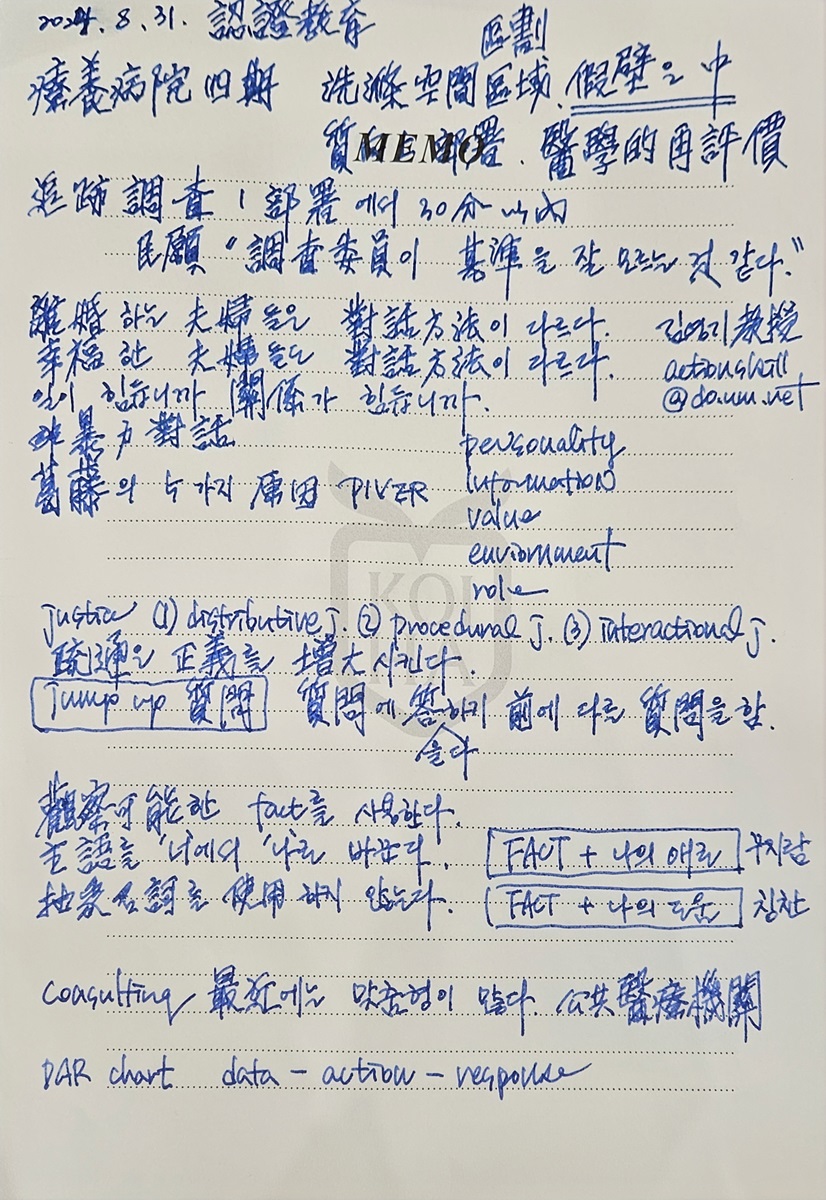 2024. 8. 31. 認證教育
區劃
療養病院 四期 洗滌空間區域, 假壁은 中
MEMO
質 部署. 醫學的再評價
追跡調査 1部署에서 30分 以內
民願 "調査委員이 基準을 잘 모르는 것 같다."
離婚하는 夫婦들은 對話方法이 다르다. 김영기 教授
幸福한 夫婦들도 對話方法이 다르다. actionskill
일이 힘듭니까 關係가 힘듭니까. @daum.net
非暴力對話 personality
葛藤의 5가지 原因 PIVER information
value
enviornment
role
KOIHA
justice (1) distributive j. (2) procedural j. (3) interactional j.
疏通은 正義를 增大시킨다.
jump up 質問 質問에 答하기 前에 다른 質問을 함.
을다
觀察可能한 fact를 사용한다.
主語를 '너'에서 '나'로 바꾼다. FACT + 나의 애로 꾸지람
抽象名詞를 使用하지 않는다. FACT + 나의 도움 칭찬
coasulting 最近에는 맞춤형이 많다. 公共醫療機關
DAR chart data - action - response